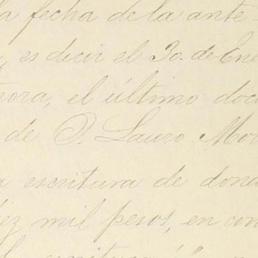 a fecha de la ante
, es decir el 30. de Ene
nora, el último doc
de D. Lauro Mor
a escritura de dona
ez mil pesos, en con